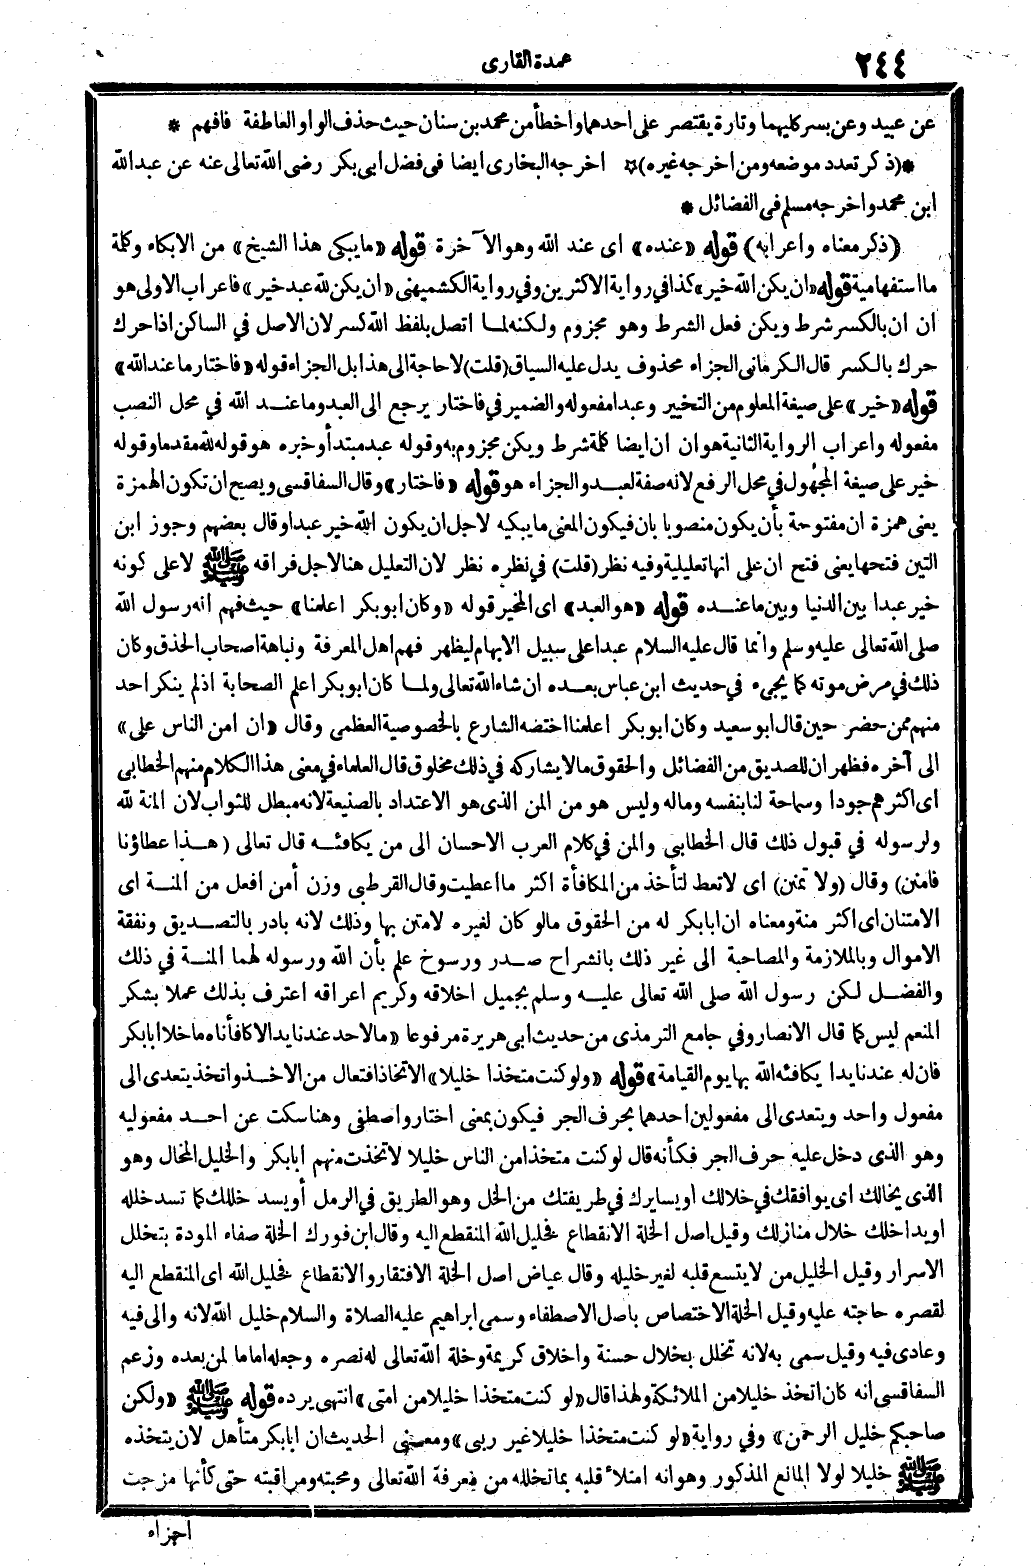 ٢٤٤
عمدة القارى
عن عبيد وعن بسر كليهما وتارة يقتصر على احدهما واخطأ من محمد بن سنان حيث حذف الواو العاطفة فافهم *
*(ذكر تعدد موضعه ومن اخرجه غيره)* اخرجه البخارى ايضا فى فضل ابى بكر رضى الله تعالى عنه عن عبد الله
ابن محمد واخرجه مسلم فى الفضائل *
(ذكر معناه واعرابه) قوله «عنده» اى عند الله وهو الآخرة قوله «ما يبكى هذا الشيخ» من الابكاء وكلة
ما استفهامية قوله «ان يكن الله خير» كذا في رواية الاكثرين وفي رواية الكشميهنى «ان يكن لله عبد خير» فاعراب الاولى هو
ان ان بالكسر شرط ويكن فعل الشرط وهو مجزوم ولكنه لما اتصل بلفظ الله كسر لان الاصل في الساكن اذا حرك
حرك بالكسر قال الكرمانى الجزاء محذوف يدل عليه السياق (قلت) لا حاجة الى هذا بل الجزاء قوله «فاختار ما عند الله»
قوله «خير» على صيغة المعلوم من التخيير وعبدا مفعوله والضمير في فاختار يرجع الى العبد وما عند الله في محل النصب
مفعوله واعراب الرواية الثانية هو ان ان ايضا كلة شرط ويكن مجزوم به وقوله عبد مبتدأ وخبره هو قوله لله مقدما وقوله
خير على صيغة المجهول في محل الرفع لانه صفة لعبد والجزاء هو قوله «فاختار» وقال السفاقسى ويصح ان تكون الهمزة
يعنى همزة ان مفتوحة بأن يكون منصوبا بان فيكون المعنى ما يبكيه لاجل ان يكون الله خير عبدا وقال بعضهم وجوز ابن
التين فتحها يعنى فتح ان على انها تعليلية وفيه نظر (قلت) في نظره نظر لان التعليل هنا لاجل فراقه ﷺ لا على كونه
خير عبدا بين الدنيا وبين ما عنده قوله «هو العبد» اى المخير قوله «وكان ابو بكر اعلمنا» حيث فهم انه رسول الله
صلى الله تعالى عليه وسلم وانما قال عليه السلام عبدا على سبيل الابهام ليظهر فهم اهل المعرفة ونباهة اصحاب الحذق وكان
ذلك في مرض موته كما يجىء في حديث ابن عباس بعده ان شاء الله تعالى ولما كان ابو بكر اعلم الصحابة اذ لم ينكر احد
منهم ممن حضر حين قال ابو سعيد وكان ابو بكر اعلمنا اختضه الشارع بالخصوصية العظمى وقال «ان امن الناس على»
الى آخره فظهر ان للصديق من الفضائل والحقوق ما لا يشاركه في ذلك مخلوق قال العلماء في معنى هذا الكلام منهم الخطابى
اى اكثرهم جودا وسماحة لنا بنفسه وماله وليس هو من المن الذى هو الاعتداد بالصنيعة لانه مبطل للثواب لان المنة لله
ولرسوله في قبول ذلك قال الخطابى والمن في كلام العرب الاحسان الى من يكافئه قال تعالى (هذا عطاؤنا
فامنن) وقال (ولا تمنن) اى لا تعط لتأخذ من المكافأة اكثر مما اعطيت وقال القرطبى وزن أمن افعل من المنة اى
الامتنان اى اكثر منة ومعناه ان ابا بكر له من الحقوق ما لو كان لغيره لامتن بها وذلك لانه بادر بالتصديق ونفقة
الاموال وبالملازمة والمصاحبة الى غير ذلك بانشراح صدر ورسوخ علم بأن الله ورسوله لهما المنة في ذلك
والفضل لكن رسول الله صلى الله تعالى عليه وسلم بجميل اخلاقه وكريم اعراقه اعترف بذلك عملا بشكر
المنعم ليس كما قال الانصار وفي جامع الترمذى من حديث ابى هريرة مرفوعا «ما لاحد عندنا يد الا كافأناه ما خلا ابا بكر
فان له عندنا يدا يكافئه الله بها يوم القيامة» قوله «ولو كنت متخذا خليلا» الاتخاذ افتعال من الاخذ واتخذ يتعدى الى
مفعول واحد ويتعدى الى مفعولين احدهما بحرف الجر فيكون بمعنى اختار واصطفى وهنا سكت عن احد مفعوليه
وهو الذى دخل عليه حرف الجر فكأنه قال لو كنت متخذا من الناس خليلا لاتخذت منهم ابا بكر والخليل المخال وهو
الذى يخالك اى يوافقك في خلالك او يسايرك في طريقتك من الخل وهو الطريق في الرمل أو يسد خللك كما تسد خلله
او يداخلك خلال منازلك وقيل اصل الخلة الانقطاع فخليل الله المنقطع اليه وقال ابن فورك الخلة صفاء المودة بتخلل
الاسرار وقيل الخليل من لا يتسع قلبه لغير خليله وقال عياض اصل الخلة الافتقار والانقطاع فخليل الله اى المنقطع اليه
لقصره حاجته عليه وقيل الخلة الاختصاص باصل الاصطفاء وسمى ابراهيم عليه الصلاة والسلام خليل الله لانه والى فيه
وعادى فيه وقيل سمى به لانه تخلل بخلال حسنة واخلاق كريمة وخلة الله تعالى له نصره وجعله اماما لمن بعده وزعم
السفاقسى انه كان اتخذ خليلا من الملائكة ولهذا قال «لو كنت متخذا خليلا من امتى» انتهى يرده قوله ﷺ «ولكن
صاحبكم خليل الرحمن» وفي رواية «لو كنت متخذا خليلا غير ربى» ومعنى الحديث ان ابا بكر متأهل لان يتخذه
ﷺ خليلا لولا المانع المذكور وهو انه امتلأ قلبه بما تخلله من معرفة الله تعالى ومحبته ومراقبته حتى كأنها مزجت
اجزاء